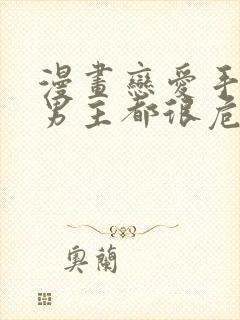 漫畫戀愛手
男主都很危
奧蘭